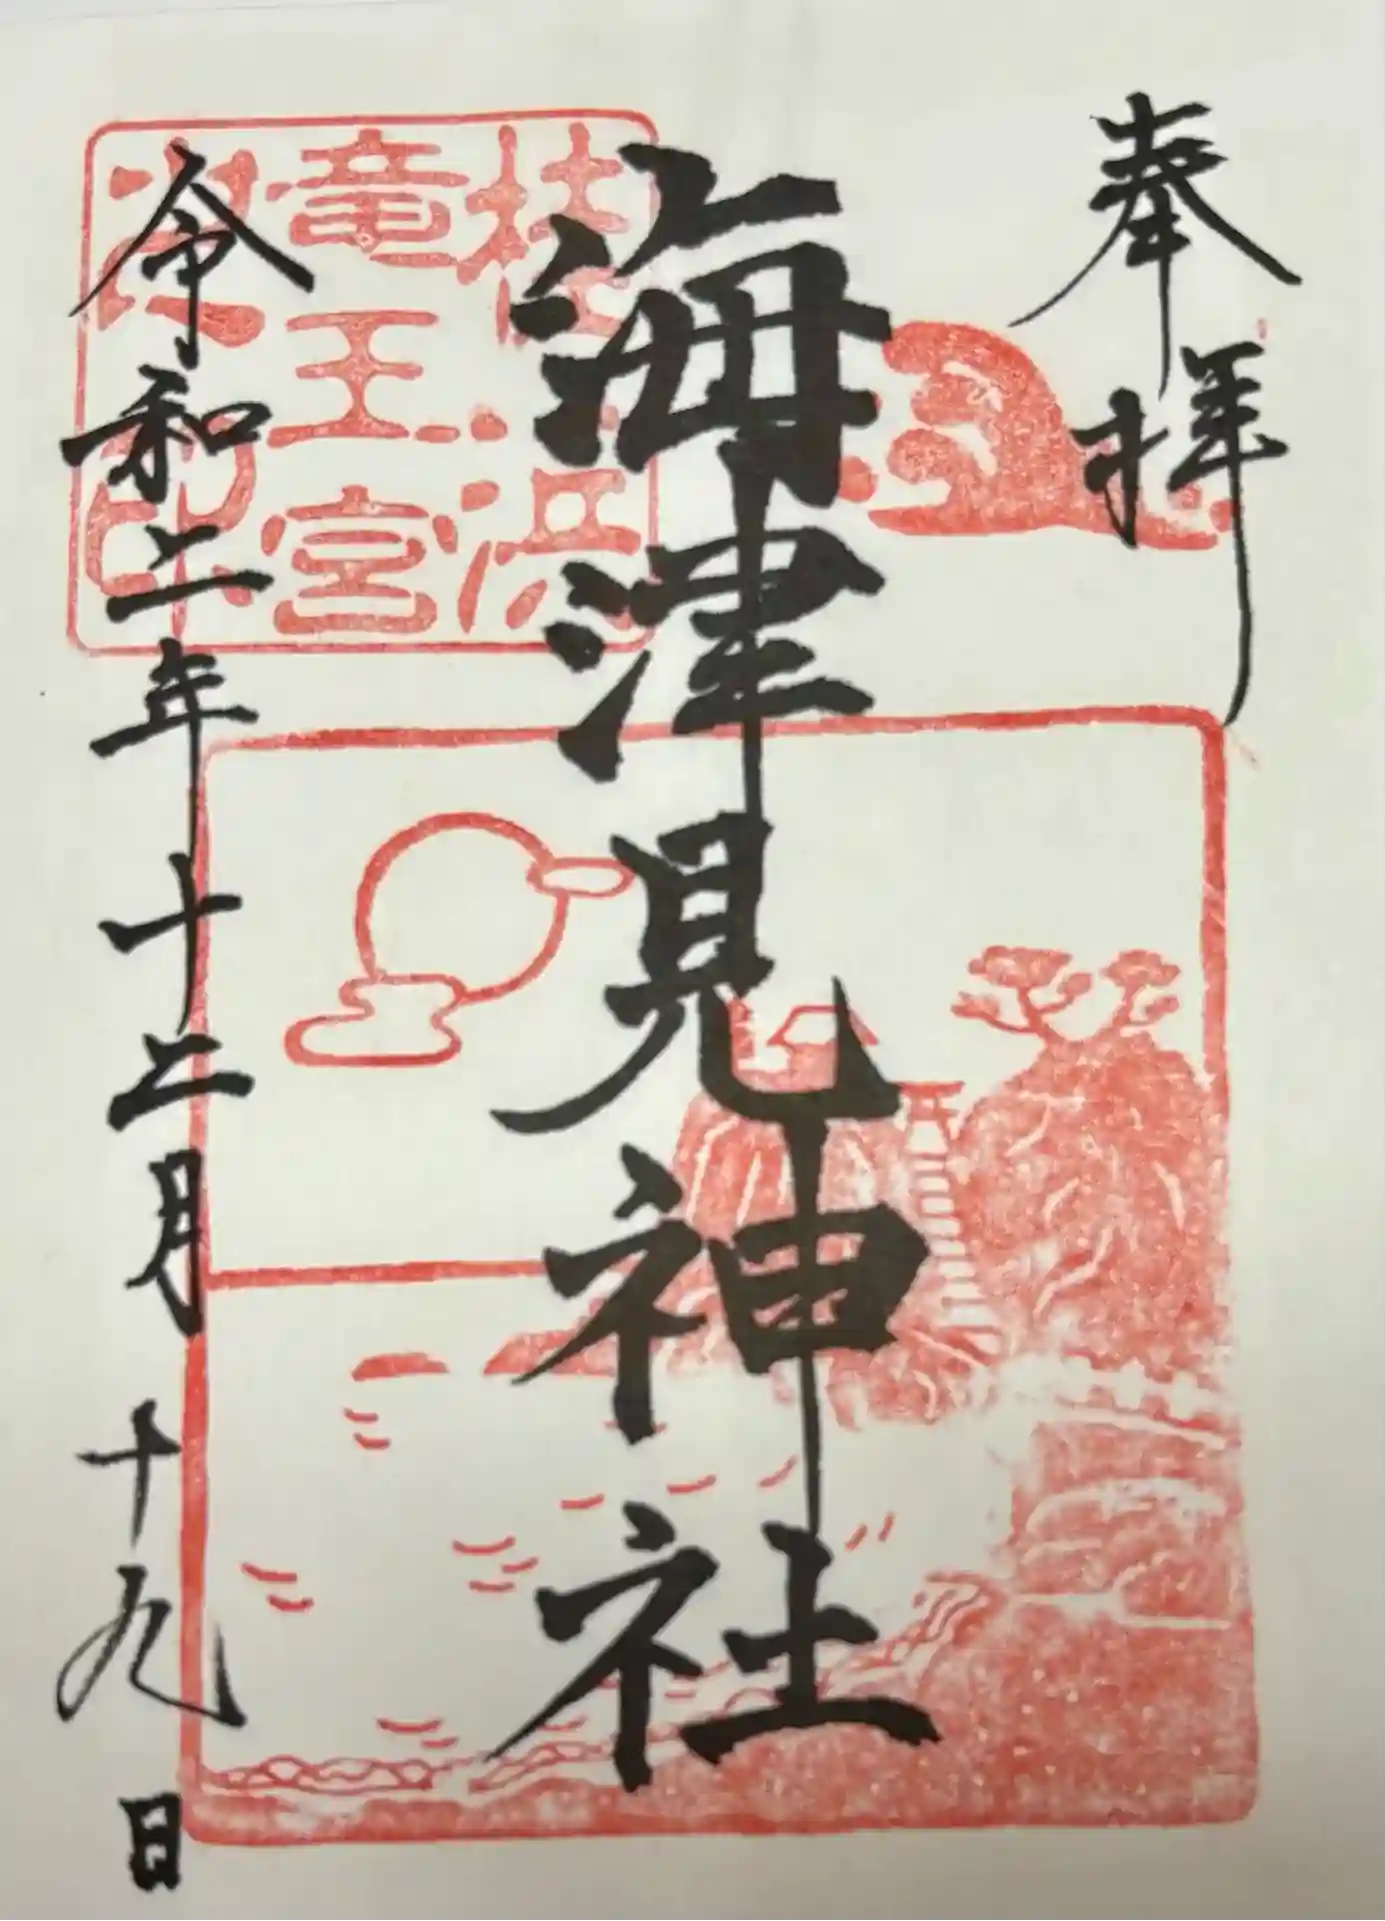 奉拝
海津見神社
桂浜
竜王宮
之印
令和二年十二月十九日